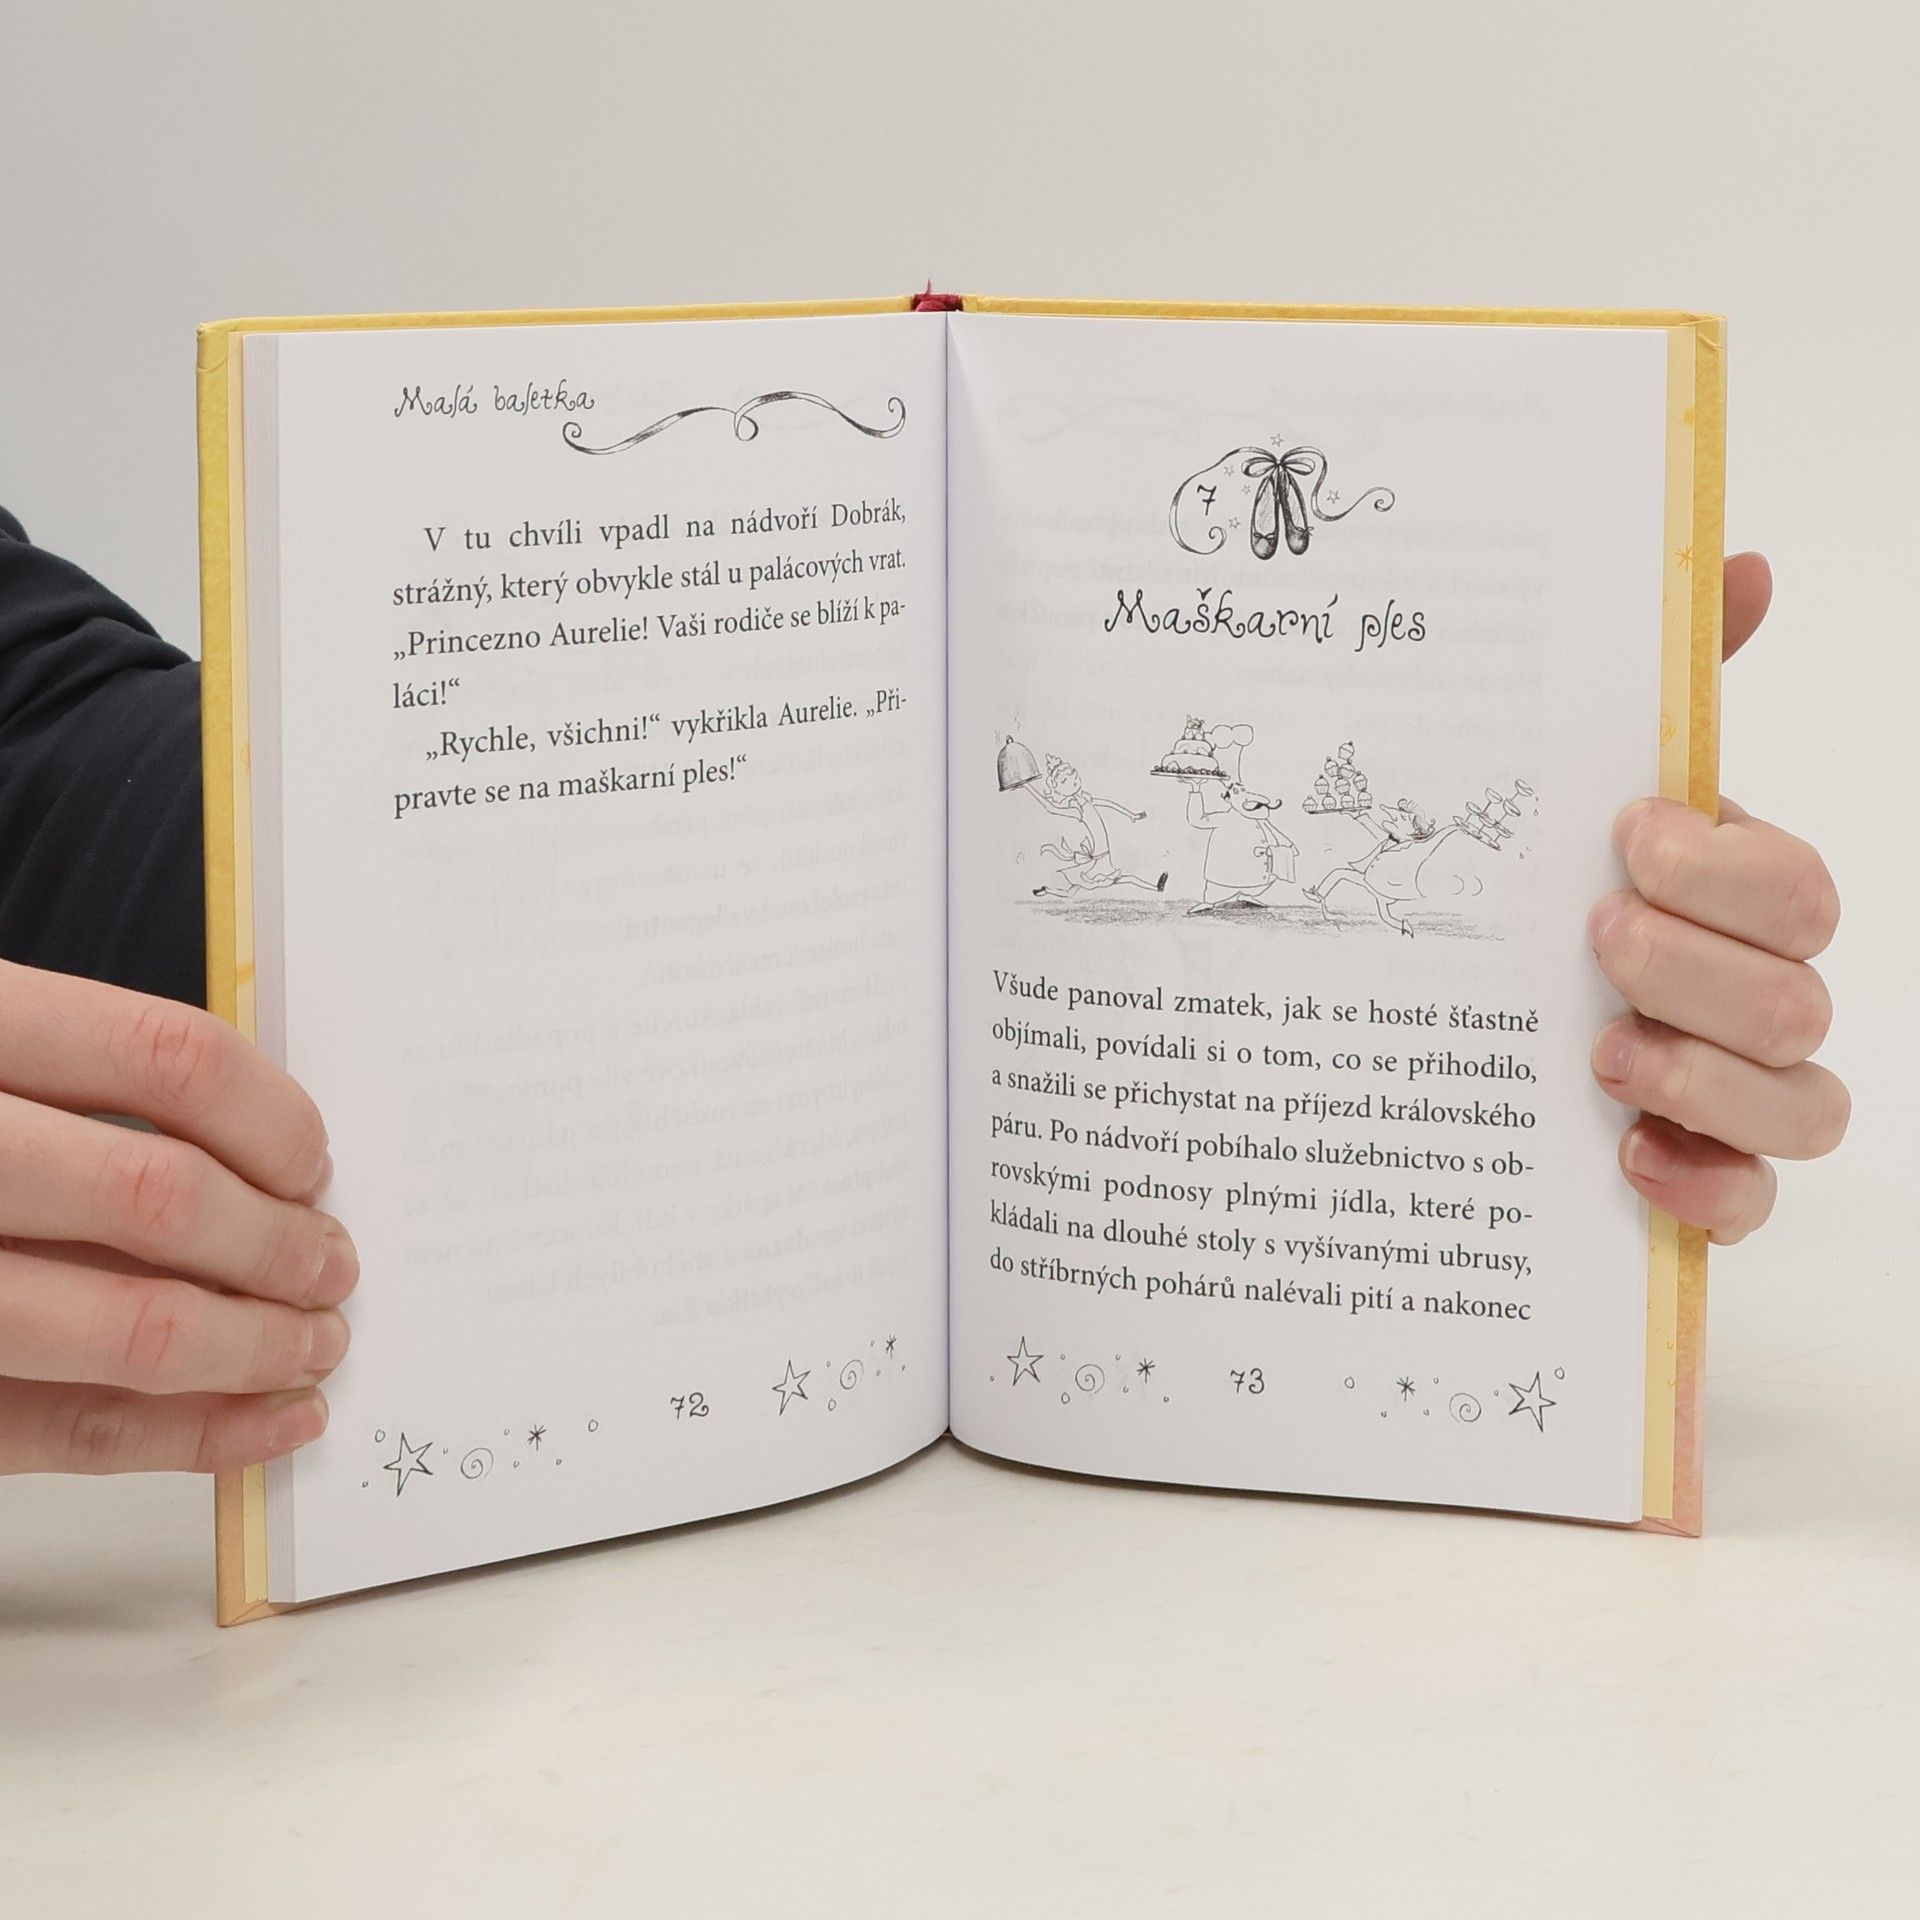 Malá baletka
V tu chvíli vpadl na nádvoří Dobrák,
strážný, který obvykle stál u palácových vrat.
„Princezno Aurelie! Vaši rodiče se blíží k pa-
láci!“
„Rychle, všichni!“ vykřikla Aurelie. „Při-
pravte se na maškarní ples!“
72
7
Maškarní ples
Všude panoval zmatek, jak se hosté šťastně
objímali, povídali si o tom, co se přihodilo,
a snažili se přichystat na příjezd královského
páru. Po nádvoří pobíhalo služebnictvo s ob-
rovskými podnosy plnými jídla, které po-
kládali na dlouhé stoly s vyšívanými ubrusy,
do stříbrných pohárů nalévali pití a nakonec
73